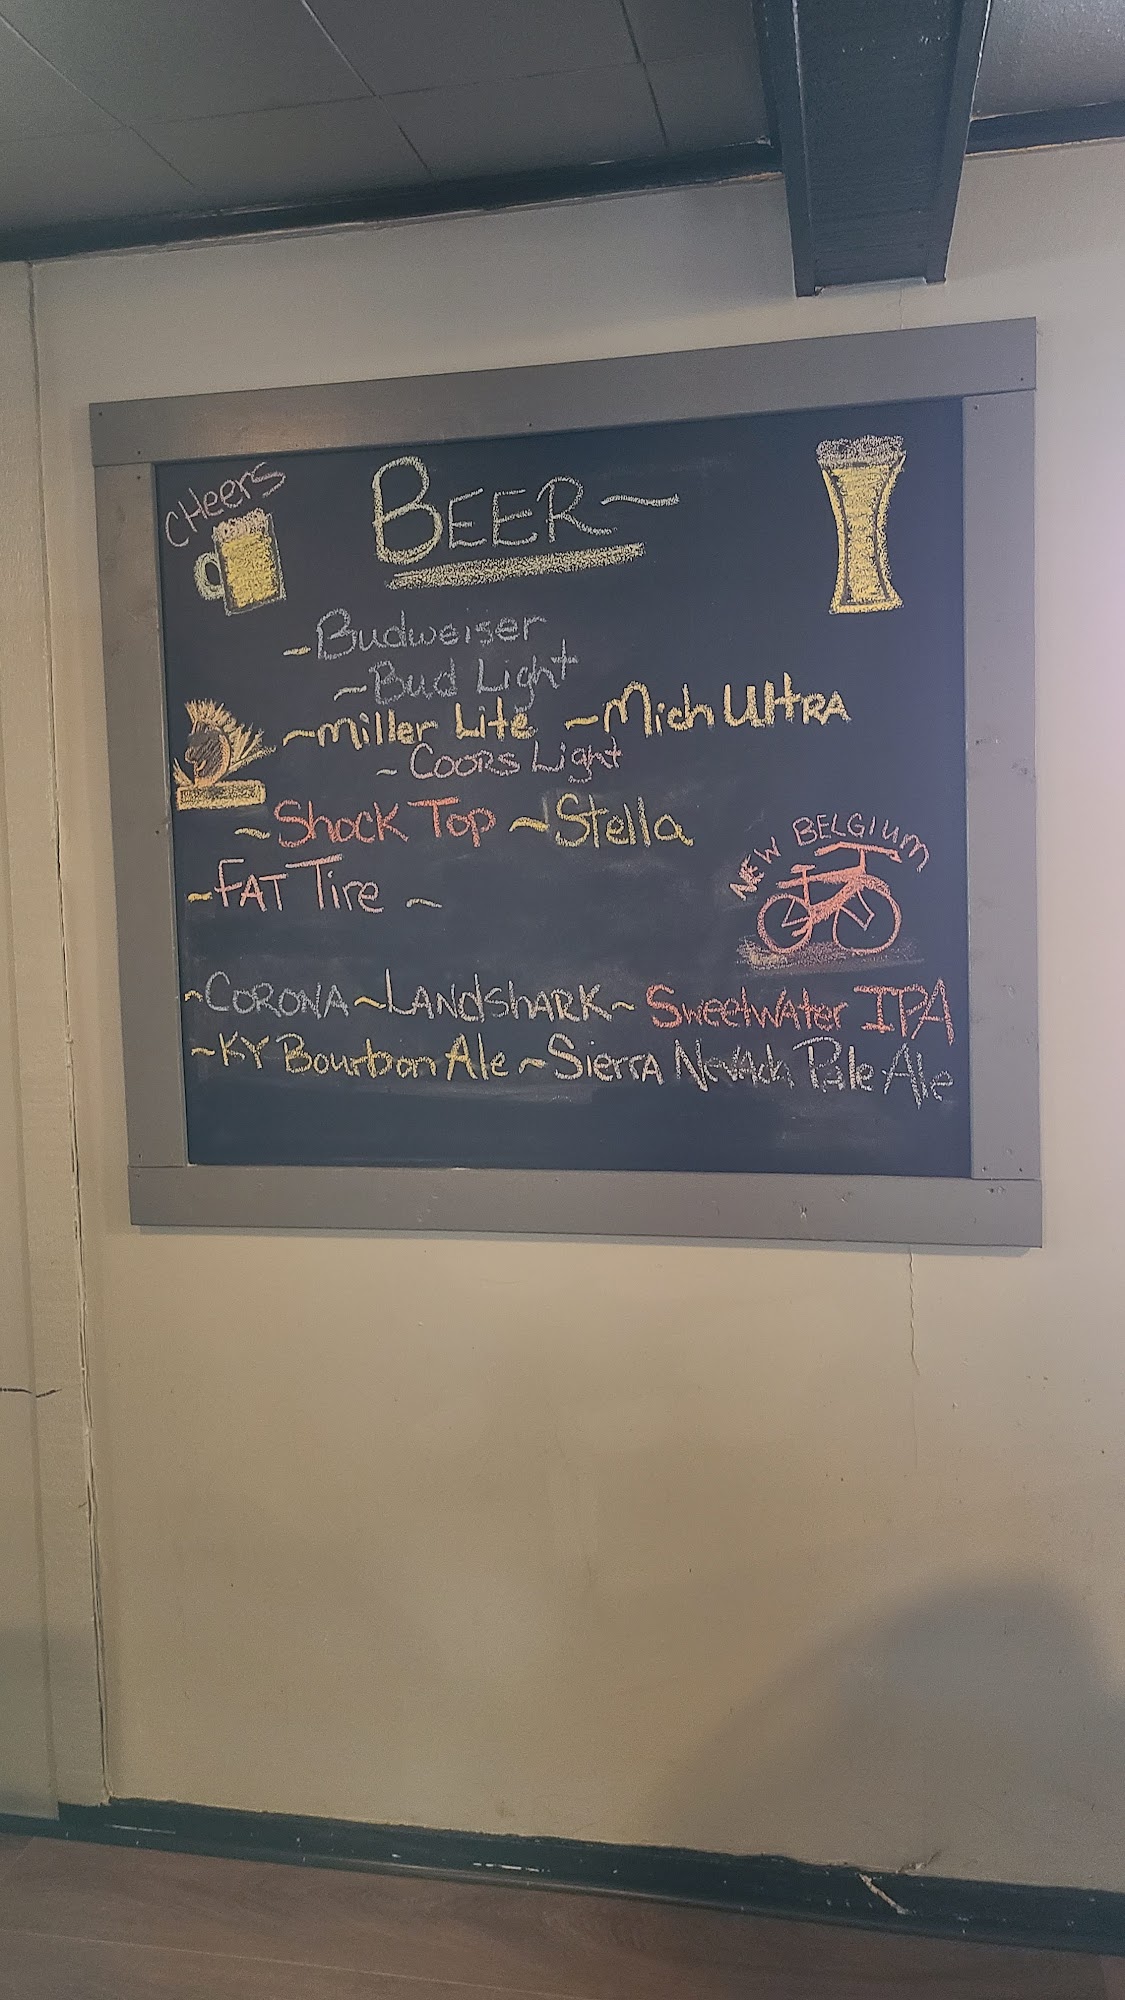 CHeers
BEER~
~Budweiser
~Bud Light
~Miller Lite ~Mich UltRA
~COORS Light
~Shock Top ~Stella
~FAT Tire ~
NEW BELGIUM
~CORONA ~LANdshARK~ SweetwAter IPA
~KY Bourbon Ale ~SierrA NevAda Pale Ale